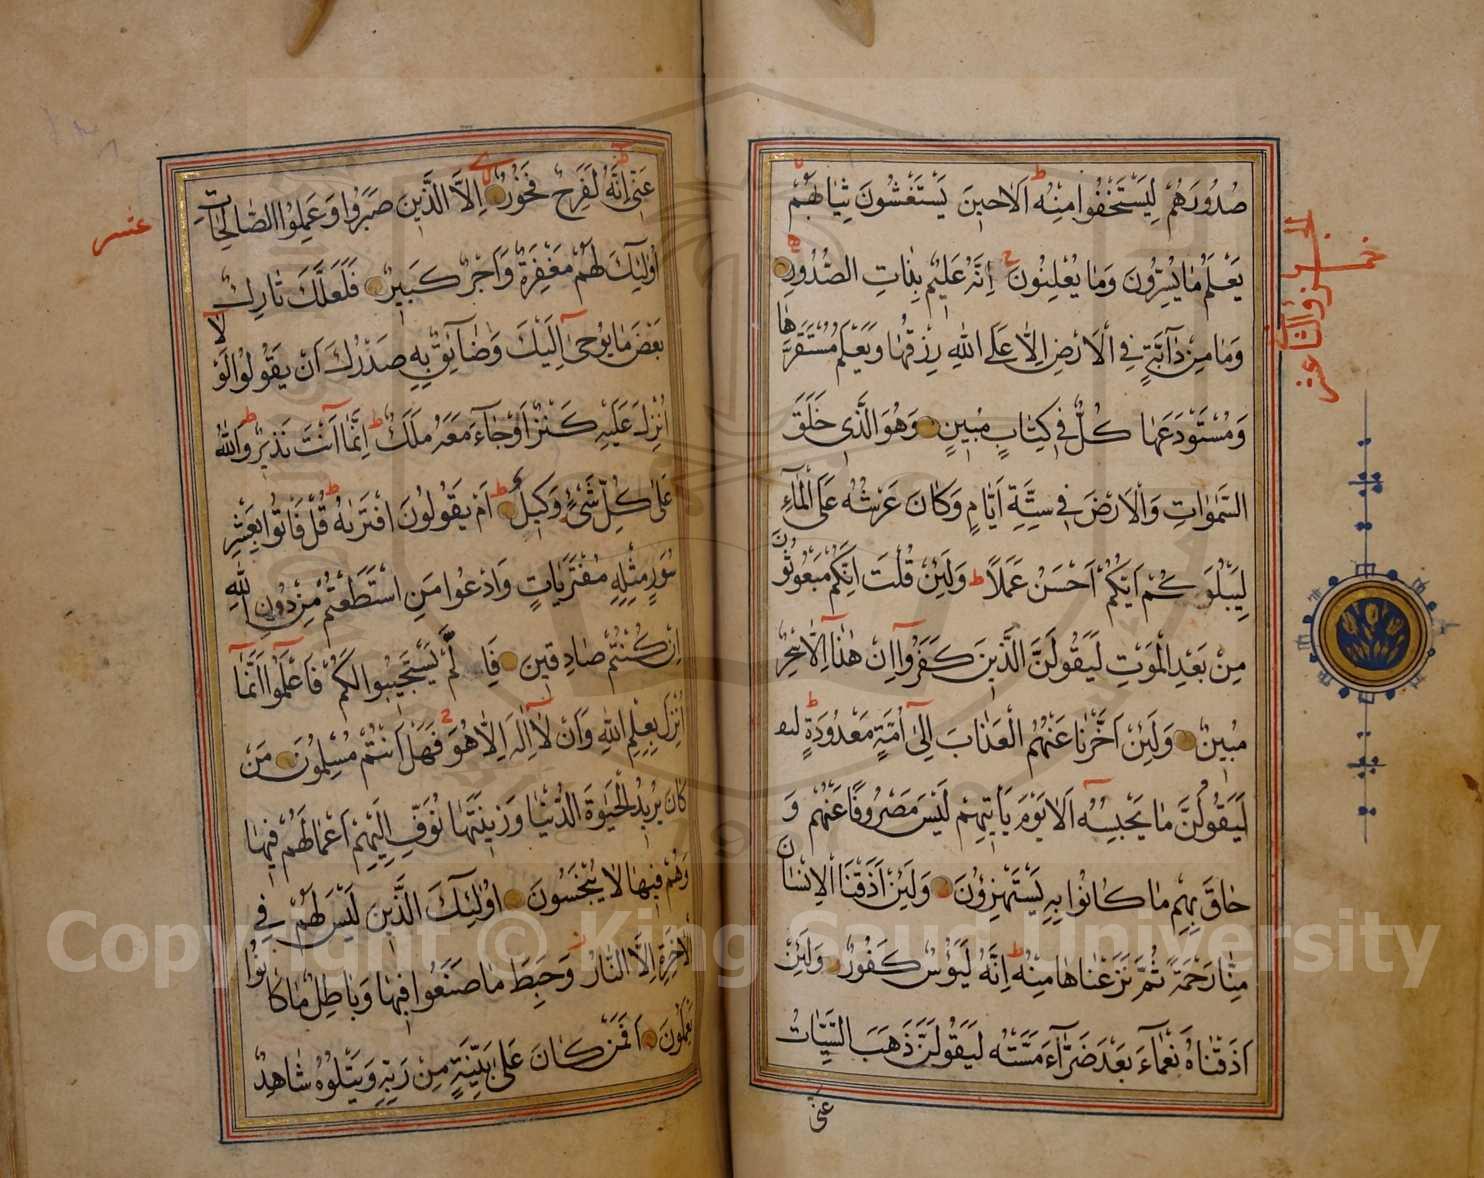 صُدُورَهُمْ لِيَسْتَخْفُوا مِنْهُ اَلَا حِينَ يَسْتَغْشُونَ ثِيَابَهُمْ
يَعْلَمُ مَا يُسِرُّونَ وَمَا يُعْلِنُونَ اِنَّهُ عَلِيمٌ بِذَاتِ الصُّدُورِ
وَمَا مِنْ دَآبَّةٍ فِي الْاَرْضِ اِلَّا عَلَى اللّٰهِ رِزْقُهَا وَيَعْلَمُ مُسْتَقَرَّهَا
وَمُسْتَوْدَعَهَا كُلٌّ فِي كِتَابٍ مُبِينٍ وَهُوَ الَّذِي خَلَقَ
السَّمٰوَاتِ وَالْاَرْضَ فِي سِتَّةِ اَيَّامٍ وَكَانَ عَرْشُهُ عَلَى الْمَآءِ
لِيَبْلُوَكُمْ اَيُّكُمْ اَحْسَنُ عَمَلًا وَلَئِنْ قُلْتَ اِنَّكُمْ مَبْعُوثُونَ
مِنْ بَعْدِ الْمَوْتِ لَيَقُولَنَّ الَّذِينَ كَفَرُوا اِنْ هٰذَا اِلَّا سِحْرٌ
مُبِينٌ وَلَئِنْ اَخَّرْنَا عَنْهُمُ الْعَذَابَ اِلٰى اُمَّةٍ مَعْدُودَةٍ
لَيَقُولُنَّ مَا يَحْبِسُهُ اَلَا يَوْمَ يَاْتِيهِمْ لَيْسَ مَصْرُوفًا عَنْهُمْ وَ
حَاقَ بِهِمْ مَا كَانُوا بِهِ يَسْتَهْزِؤُنَ وَلَئِنْ اَذَقْنَا الْاِنْسَانَ
مِنَّا رَحْمَةً ثُمَّ نَزَعْنَاهَا مِنْهُ اِنَّهُ لَيَؤُسٌ كَفُورٌ وَلَئِنْ
اَذَقْنَاهُ نَعْمَآءَ بَعْدَ ضَرَّآءَ مَسَّتْهُ لَيَقُولَنَّ ذَهَبَ السَّيِّئَاتُ
عَنِّي
عَنِّي اِنَّهُ لَفَرِحٌ فَخُورٌ اِلَّا الَّذِينَ صَبَرُوا وَعَمِلُوا الصَّالِحَاتِ
اُولٰئِكَ لَهُمْ مَغْفِرَةٌ وَاَجْرٌ كَبِيرٌ فَلَعَلَّكَ تَارِكٌ
بَعْضَ مَا يُوحٰى اِلَيْكَ وَضَآئِقٌ بِهِ صَدْرُكَ اَنْ يَقُولُوا لَوْلَا
اُنْزِلَ عَلَيْهِ كَنْزٌ اَوْ جَآءَ مَعَهُ مَلَكٌ اِنَّمَا اَنْتَ نَذِيرٌ وَاللّٰهُ
عَلٰى كُلِّ شَيْءٍ وَكِيلٌ اَمْ يَقُولُونَ افْتَرٰيهُ قُلْ فَاْتُوا بِعَشْرِ
سُوَرٍ مِثْلِهِ مُفْتَرَيَاتٍ وَادْعُوا مَنِ اسْتَطَعْتُمْ مِنْ دُونِ اللّٰهِ
اِنْ كُنْتُمْ صَادِقِينَ فَاِ لَّمْ يَسْتَجِيبُوا لَكُمْ فَاعْلَمُوا اَنَّمَا
اُنْزِلَ بِعِلْمِ اللّٰهِ وَاَنْ لَا اِلٰهَ اِلَّا هُوَ فَهَلْ اَنْتُمْ مُسْلِمُونَ مَنْ
كَانَ يُرِيدُ الْحَيٰوةَ الدُّنْيَا وَزِينَتَهَا نُوَفِّ اِلَيْهِمْ اَعْمَالَهُمْ فِيهَا
وَهُمْ فِيهَا لَا يُبْخَسُونَ اُولٰئِكَ الَّذِينَ لَيْسَ لَهُمْ فِي
الْاٰخِرَةِ اِلَّا النَّارُ وَحَبِطَ مَا صَنَعُوا فِيهَا وَبَاطِلٌ مَا كَانُوا
يَعْمَلُونَ اَفَمَنْ كَانَ عَلٰى بَيِّنَةٍ مِنْ رَبِّهِ وَيَتْلُوهُ شَاهِدٌ
عشر
Copyright © King Saud University